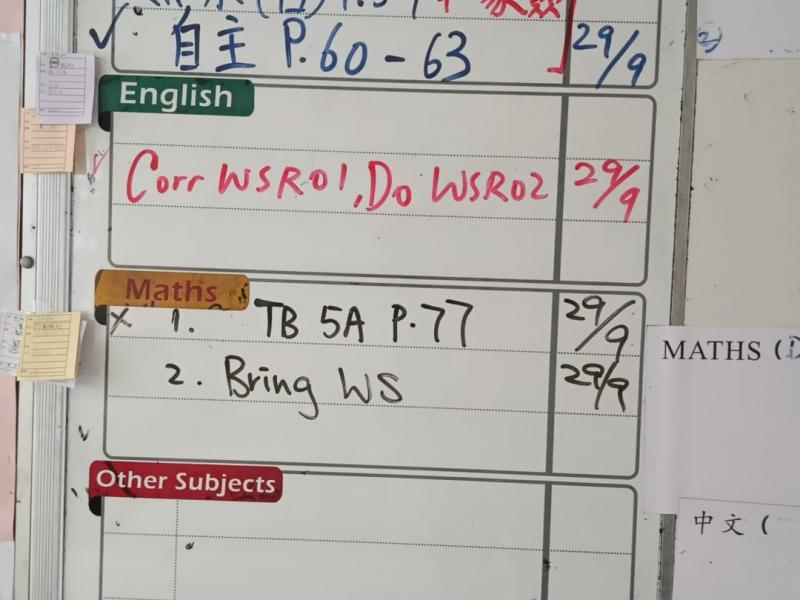 自主 P.60-63 29/9
English
Corr WSR01, Do WSR02 29/9
Maths
1. TB 5A P.77 29/9
2. Bring WS 29/9
Other Subjects
MATHS (
中文 (